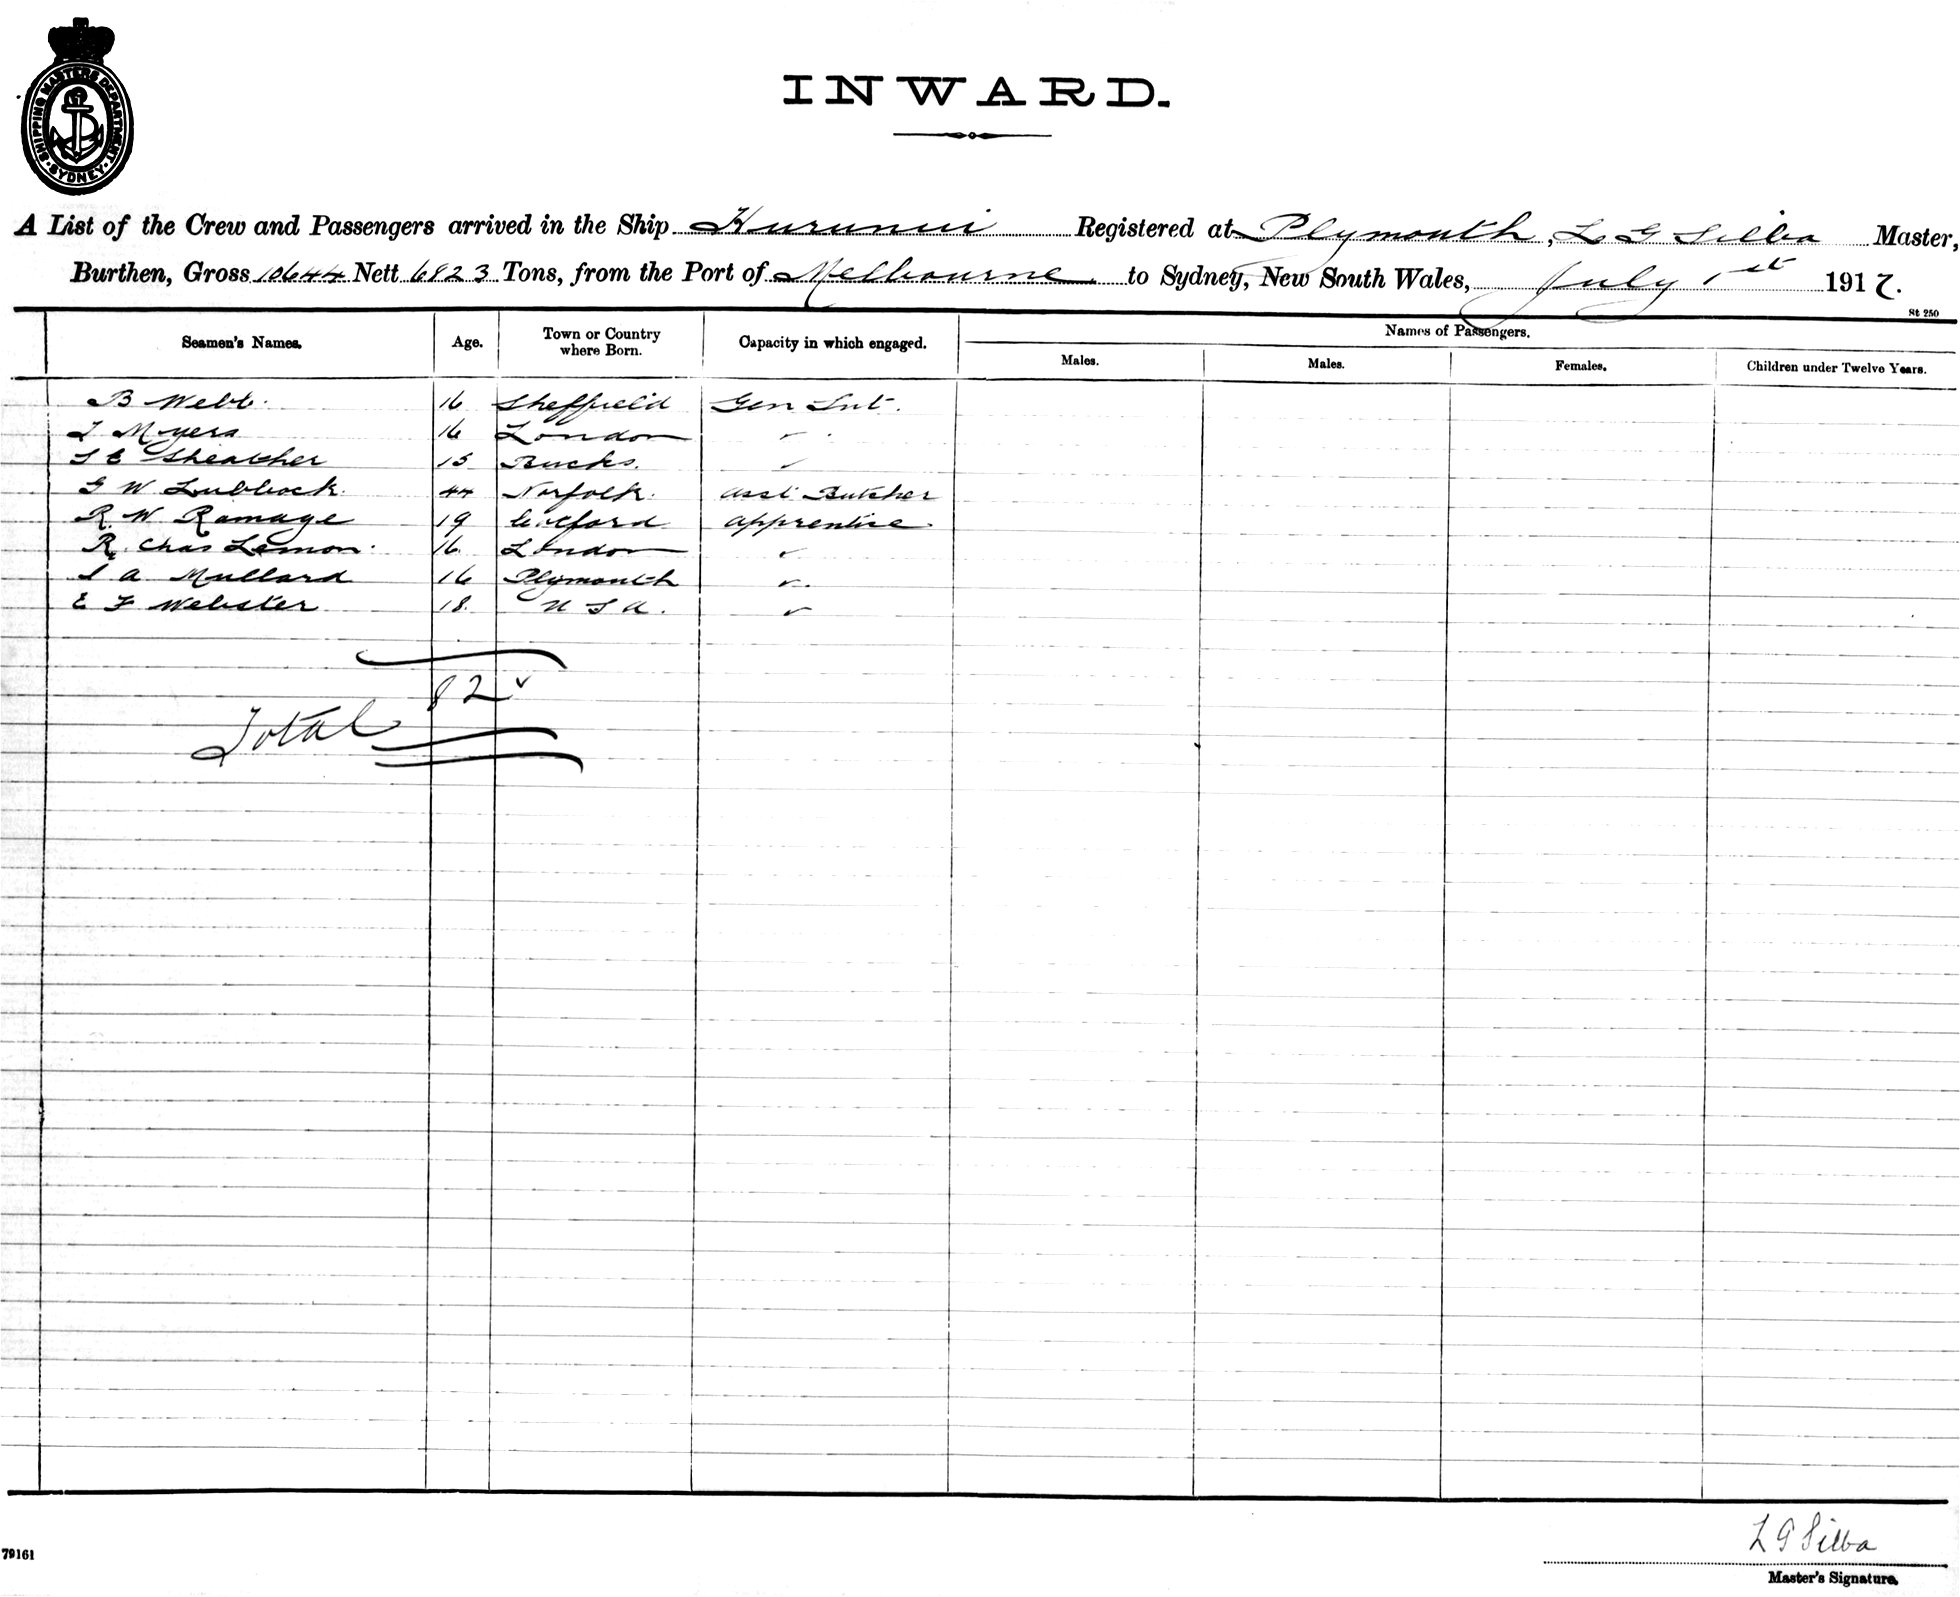 SHIPPING MASTERS DEPARTMENT
SYDNEY
INWARD.
A List of the Crew and Passengers arrived in the Ship Hurunui Registered at Plymouth, L G Silba Master,
Burthen, Gross 10644 Nett 6823 Tons, from the Port of Melbourne to Sydney, New South Wales, July 1st 1917.
St 250
Seamen's Names. Age. Town or Country where Born. Capacity in which engaged. Names of Passengers.
Males. Males. Females. Children under Twelve Years.
B Webb 16 Sheffield Gen Snt.
Myers 16 London
S E Sheather 15 Bucks.
G W Lubbock. 44 Norfolk. Asst Butcher
R. W Ramage 19 apprentice.
R. Chas Lemon. 16 London
A Mullard 16 Plymouth
E F Webster 18. U S A.
82
Total
L G Silba
79161
Master's Signature.